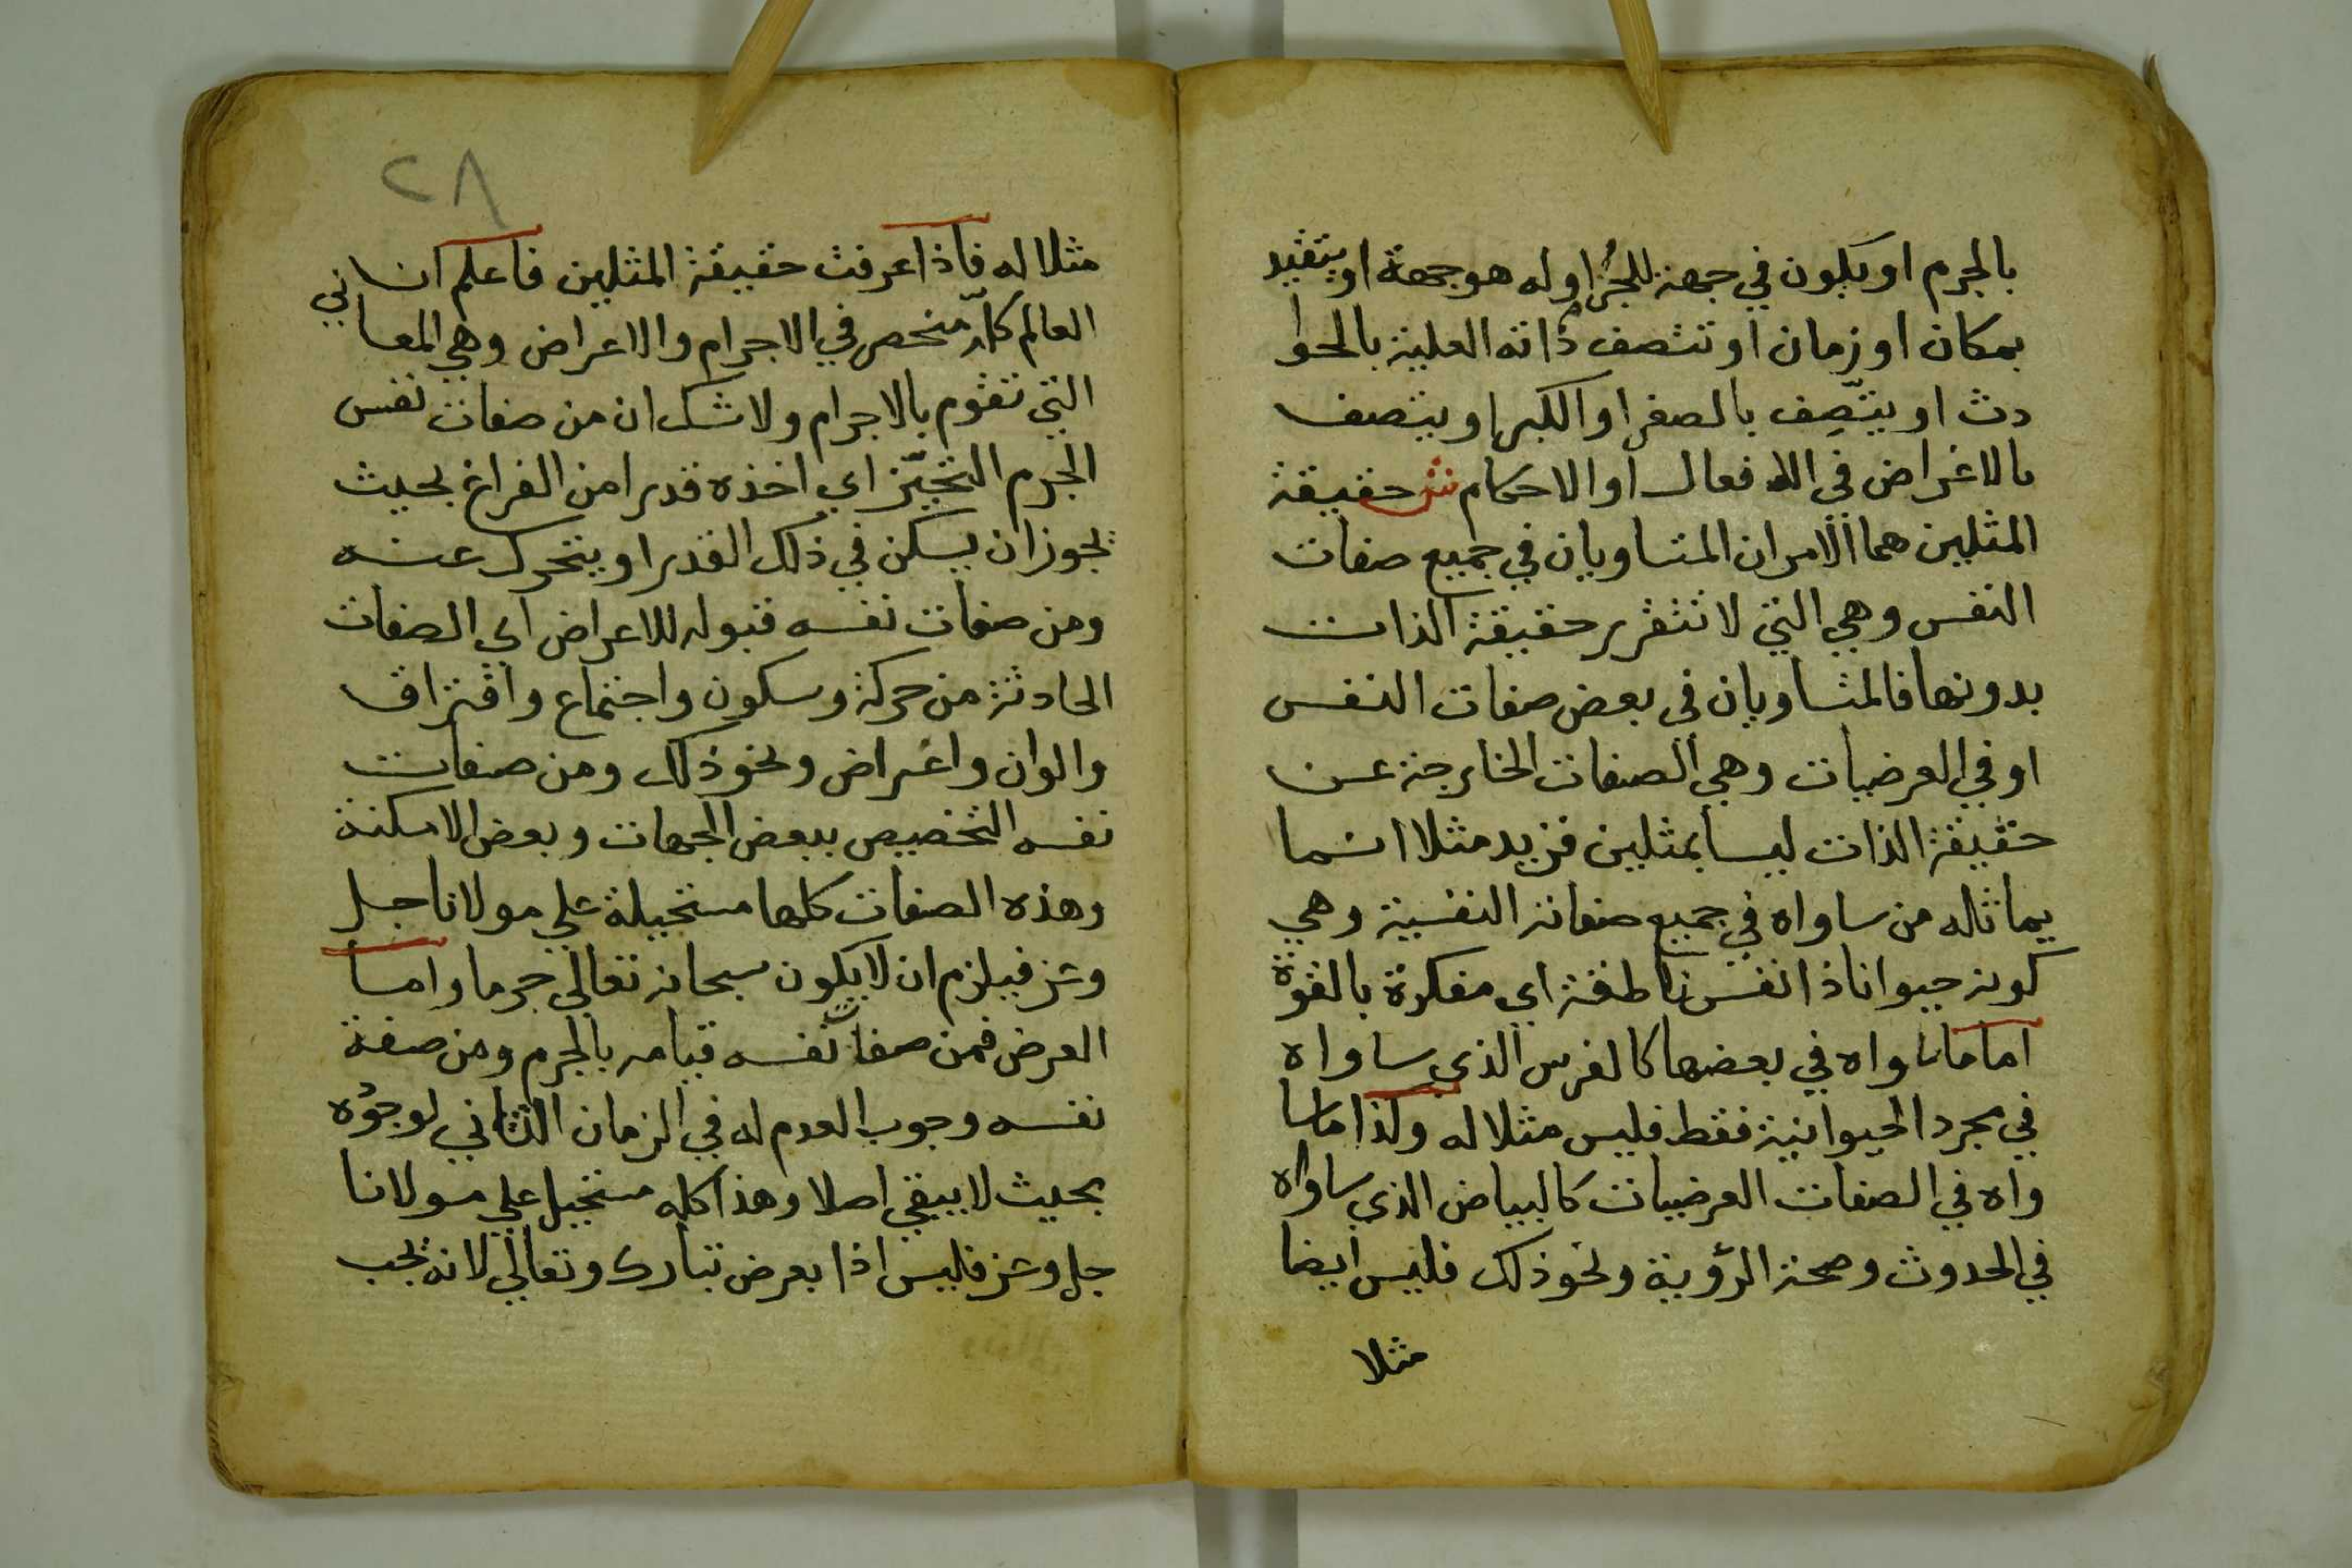 بالجرم او يكون في جهة للجرم او له هو جهة او يتقيد
بمكان او زمان او تتصف ذاته العلية بالحوا
دث او يتّصف بالصغر او الكبر او يتصف
بالاغراض في الافعال او الاحكام ش حقيقة
المثلين هما الامران المتساويان في جميع صفات
النفس وهي التي لا تتقرر حقيقة الذات
بدونها فالمتساويان في بعض صفات النفس
او في العرضيات وهي الصفات الخارجة عن
حقيقة الذات ليسا بمثلين فزيد مثلا انما
يماثله من ساواه في جميع صفاته النفسية وهي
كونه حيوانا ذا نفس ناطقة اي مفكرة بالقوة
اما ما ساواه في بعضها كالفرس الذي ساواه
في مجرد الحيوانية فقط فليس مثلا له وكذا ما سا
واه في الصفات العرضيات كالبياض الذي ساواه
في الحدوث وصحة الرؤية ونحو ذلك فليس ايضا
مثلا
٢٨
مثلا له فاذا عرفت حقيقة المثلين فاعلم ان
العالم كلّه منحصر في الاجرام والاعراض وهي المعاني
التي تقوم بالاجرام ولا شك ان من صفات نفس
الجرم التحيّز اي اخذه قدرا من الفراغ بحيث
يجوز ان يسكن في ذلك القدر او يتحرك عنه
ومن صفات نفسه قبوله للاعراض اي الصفات
الحادثة من حركة وسكون واجتماع وافتراق
والوان واغراض ونحو ذلك ومن صفات
نفسه التخصيص ببعض الجهات وبعض الامكنة
وهذه الصفات كلها مستحيلة علي مولانا جل
وعز فيلزم ان لا يكون سبحانه تعالي جرما واما
العرض فمن صفات نفسه قيامه بالجرم ومن صفة
نفسه وجوب العدم له في الزمان الثاني لوجوده
بحيث لا يبقي اصلا وهذا كله مستحيل علي مولانا
جل وعز فليس اذا بعرض تبارك وتعالي لانه يجب